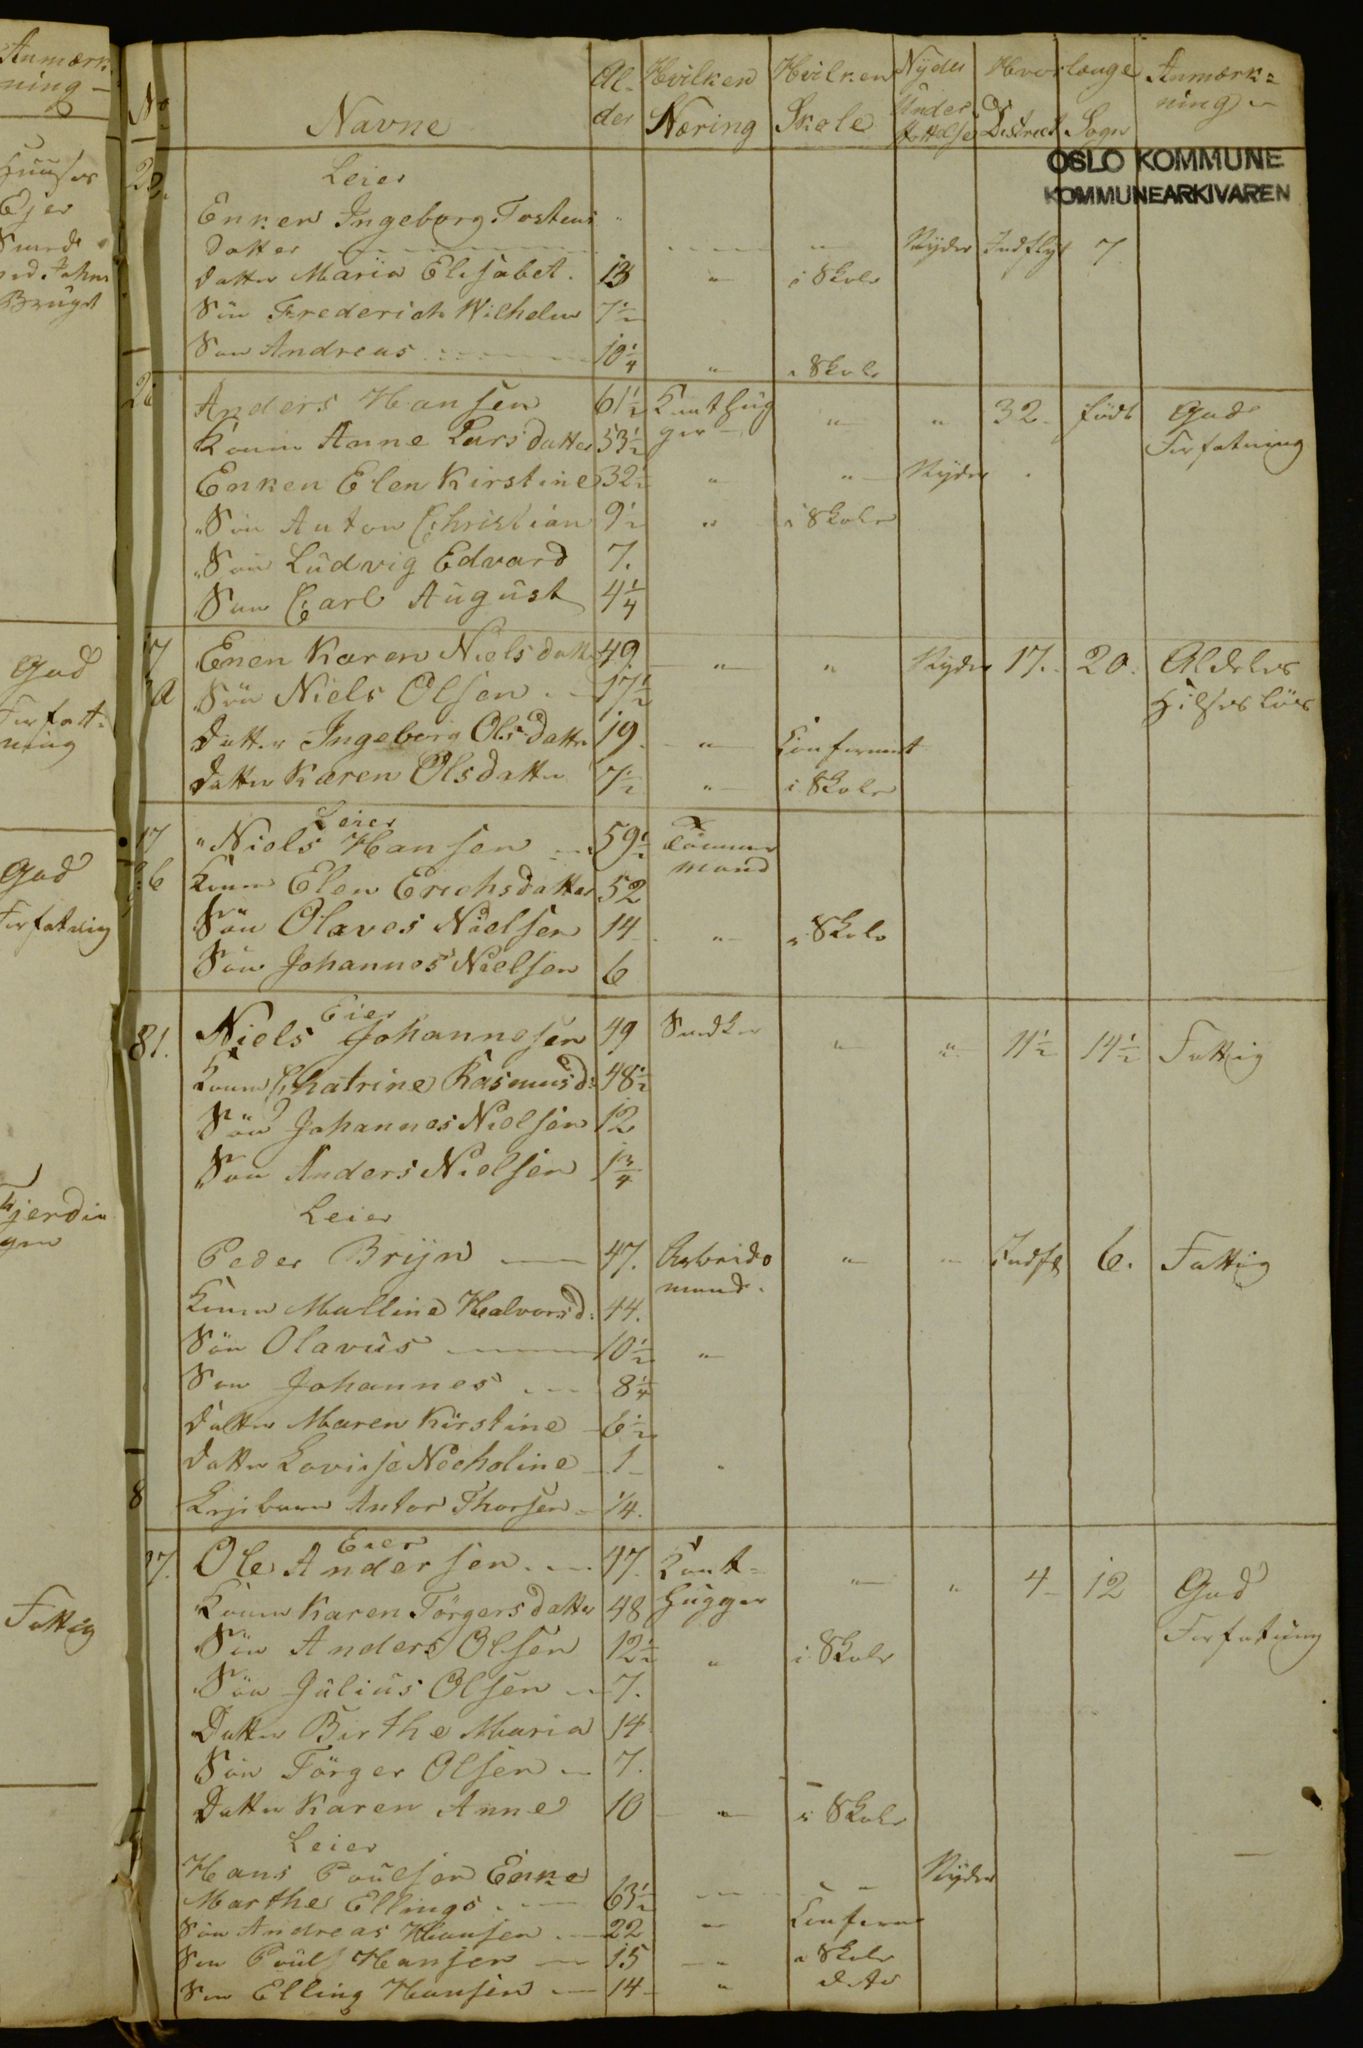 Anmærk-
ning
Ejer
Brüget
God
Forfat-
ning
God
Forfatnig
Fattig
No
Navne
Al-
der
Hvilken
Næring
Hvilken
Skole
Nyder
Under
støttelse
Hvorlænge
Anmærk=
ning
District Sogn
OSLO KOMMUNE
KOMMUNEARKIVAREN
Leier
Enken Ingeborg Tostens "
Datter Nyder Indflyt 7
Datter Maria Elisabet. 13 " i Skole
Sön Frederich Wilhelm 7½
Sön Andreas 10¼ " i Skole
Anders Hansen 61½ Kanthug " " 32. födt God
Konen Anne Larsdatter 53½ ger Forfatning
Enken Elen Kirstine 32½ " " Nyder
Sön Anton Christian 9½ " i Skole
Sön Ludvig Edvard 7.
Sön Carl August 4¼
Enken Karen Nielsdatter 49 " " Nyder 17. 20. Aldeles
a Sön Niels Olsen 17½ Hilseslös
Datter Ingeborg Olsdatter 19 " Confirmert
Datter Karen Olsdatter 7½ " i Skole
Leier
17 " Niels Hansen 59½ Tömmer
b Konen Elen Erichsdatter 52 mand
Sön Olaves Nielsen 14 " i Skole
Sön Johannes Nielsen 6
Eier
81. Niels Johannesen 49 Snedker " " 11½ 14½ Fattig
Konen Chatrine Rasmusd: 48½
Sön Johannes Nielsen 12
Sön Anders Nielsen 1¾
Leier
Peder Brijn 47. Arbeids " " Indfl 6. Fattig
Konen Malline Halvorsd: 44. mand.
Sön Olavus 10½ "
Sön Johannes 8¼
Datter Maren Kirstine 6½
Datter Lovise Nicholine 1
8 Lejebarn Anton Thorsen ¼.
Eier
37. Ole Andersen 47. Kant= " " 4 12 God
Konen Karen Törgersdatter 48 hugger Forfatning
Sön Anders Olsen 12½ " i Skole
Sön Julius Olsen 7.
Datter Birthe Maria 14
Sön Törger Olsen 7.
Datter Karen Anne 10 " i Skole
Leier
Hans Poulsen Enke Nyder
Marthe Ellings 63½
Sön Andreas Hansen 22 " Confirm
Sön Pouls Hansen 15 " i Skole
Sön Elling Hansen 14 " dito